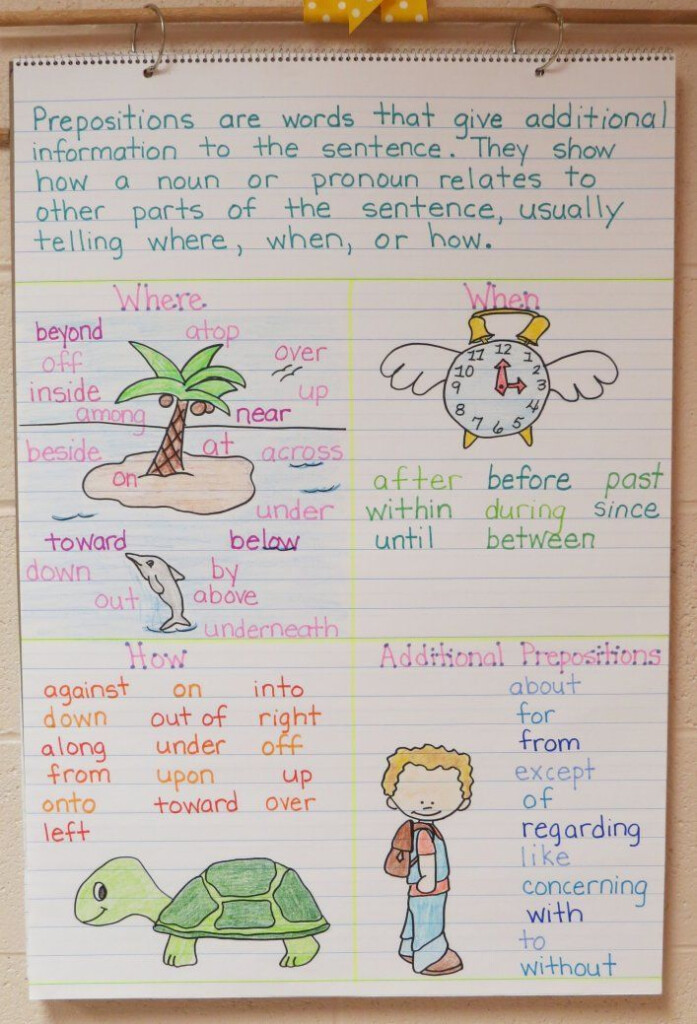 Prepositions are words that give additional
information to the sentence. They show
how a noun or pronoun relates to
other parts of the sentence, usually
telling where, when, or how.
Where
beyond atop
off over
inside up
among near
beside at across
on
under
toward below
down by
out above
underneath
When
11 12 1
10 2
9 3
8 4
7 6 5
after before past
within during since
until between
How
against on into
down out of right
along under off
from upon up
onto toward over
left
Additional Prepositions
about
for
from
except
of
regarding
like
concerning
with
to
without